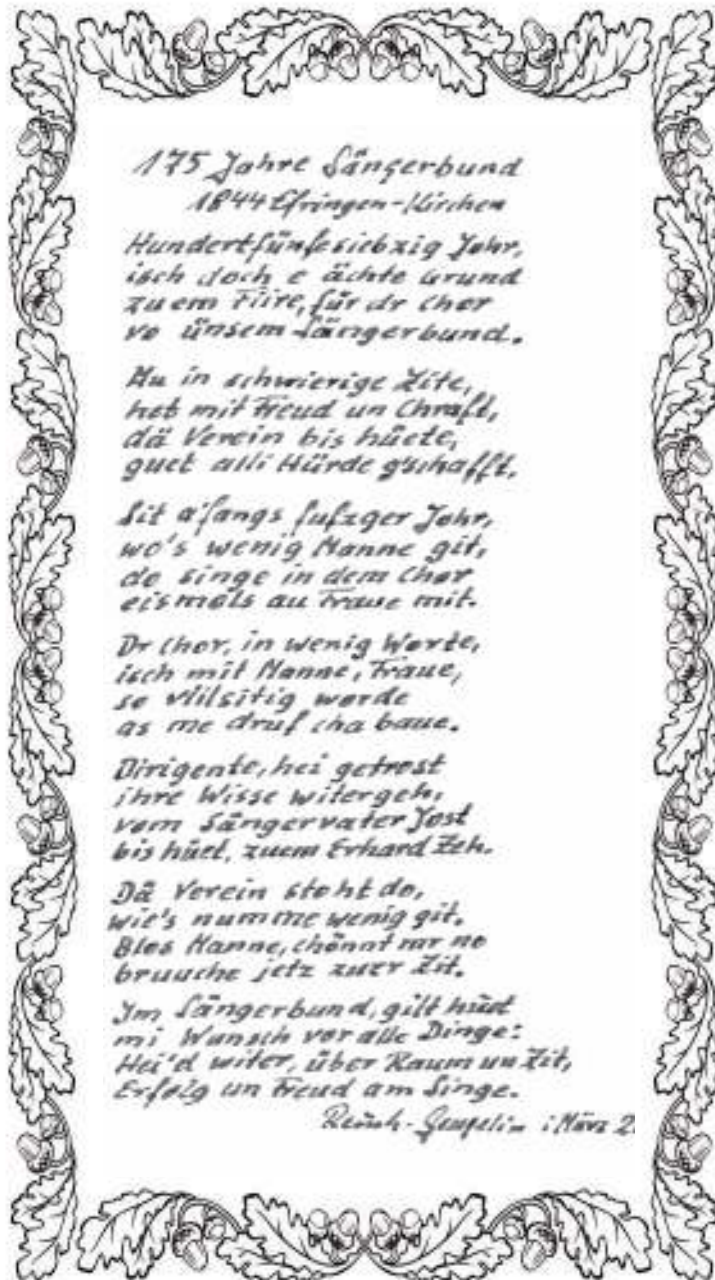 175 Jahre Sängerbund
1844 Efringen-Kirchen
Hundertfünfesiebzig Johr,
isch doch e ächte Grund
zu em Fiire, für dr Chor
vo ünsem Sängerbund.
Au in schwierige Zite,
het mit Freud un Chraft,
dä Verein bis hüete,
guet alli Hürde g'schafft.
Sit a'fangs fufzger Johr,
wo's wenig Manne git,
do singe in dem Chor
eismols au Fraue mit.
Dr Chor, in wenig Worte,
isch mit Manne, Fraue,
so vilsitig worde
as me druf cha baue.
Dirigente, hei getrost
ihre Wisse witergeh,
vom Sängervater Jost
bis hüet, zuem Erhard Zeh.
Dä Verein stoht do,
wie's numme wenig git.
Blos Manne, chönnt mr no
bruuche jetz zuer Zit.
Im Sängerbund, gilt hüet
mi Wunsch vor alle Dinge:
Hei'd witer, über Raum un Zit,
Erfolg un Freud am Singe.
i März 2